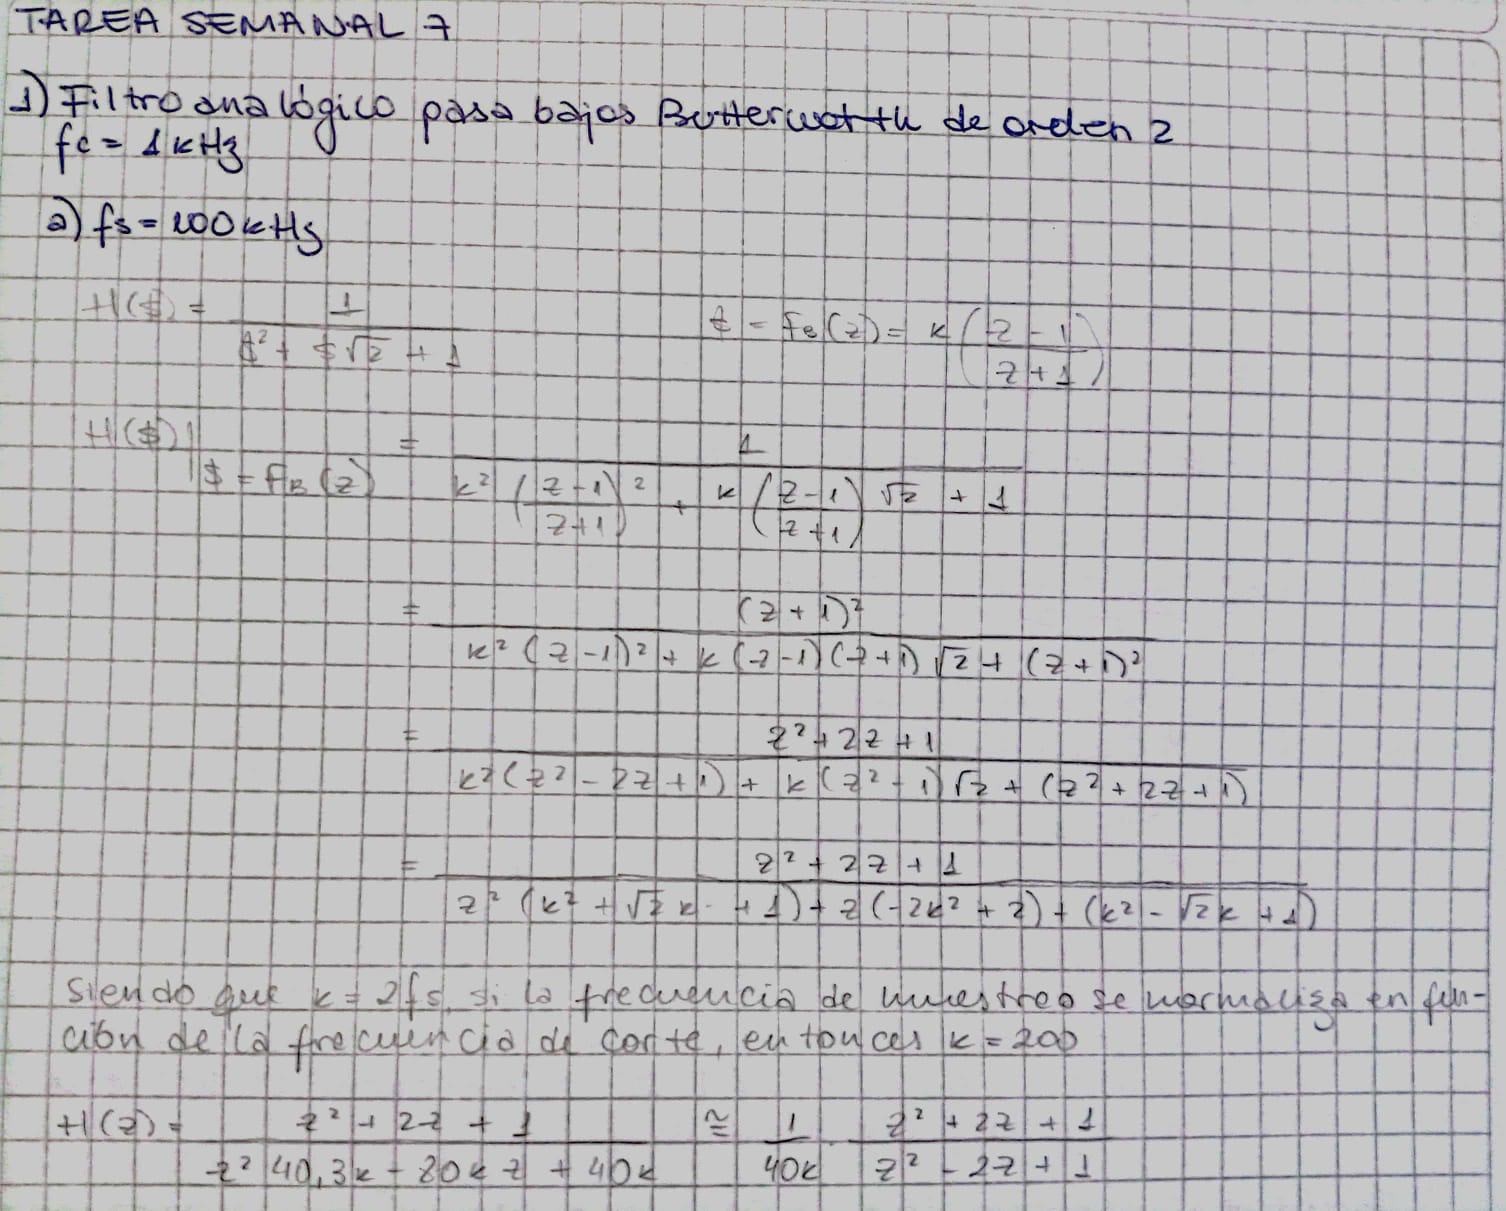 TAREA SEMANAL 7
1) Filtro analógico pasa bajos Butterworth de orden 2
fc = 1kHz
a) fs = 100kHz
H($) = 1 / ($² + $√2 + 1)   $ = FB(z) = k ((z-1)/(z+1))
H($)|$=FB(z) = 1 / (k² ((z-1)/(z+1))² + k ((z-1)/(z+1)) √2 + 1)
= (z+1)² / (k²(z-1)² + k(z-1)(z+1)√2 + (z+1)²)
= z²+2z+1 / (k²(z²-2z+1) + k(z²-1)√2 + (z²+2z+1))
= z²+2z+1 / (z²(k²+√2k+1) + z(-2k²+2) + (k²-√2k+1))
Siendo que k = 2fs, si la frecuencia de muestreo se normaliza en fun-
ción de la frecuencia de corte, entonces k = 200
H(z) = z²+2z+1 / (z² 40,3k - 80k z + 40k) ≅ 1/40k · z²+2z+1 / (z²-2z+1)